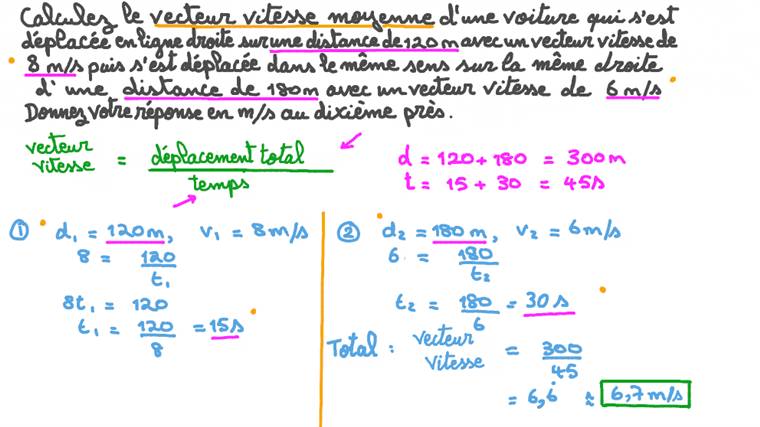 Calculez le vecteur vitesse moyenne d'une voiture qui s'est
déplacée en ligne droite sur une distance de 120 m avec un vecteur vitesse de
8 m/s puis s'est déplacée dans le même sens sur la même droite
d'une distance de 180 m avec un vecteur vitesse de 6 m/s
Donnez votre réponse en m/s au dixième près.
vecteur vitesse = déplacement total / temps
d = 120 + 180 = 300 m
t = 15 + 30 = 45 s
① d₁ = 120 m, v₁ = 8 m/s
8 = 120 / t₁
8t₁ = 120
t₁ = 120 / 8 = 15 s
② d₂ = 180 m, v₂ = 6 m/s
6 = 180 / t₂
t₂ = 180 / 6 = 30 s
Total : vecteur vitesse = 300 / 45
= 6,6̇ ≈ 6,7 m/s